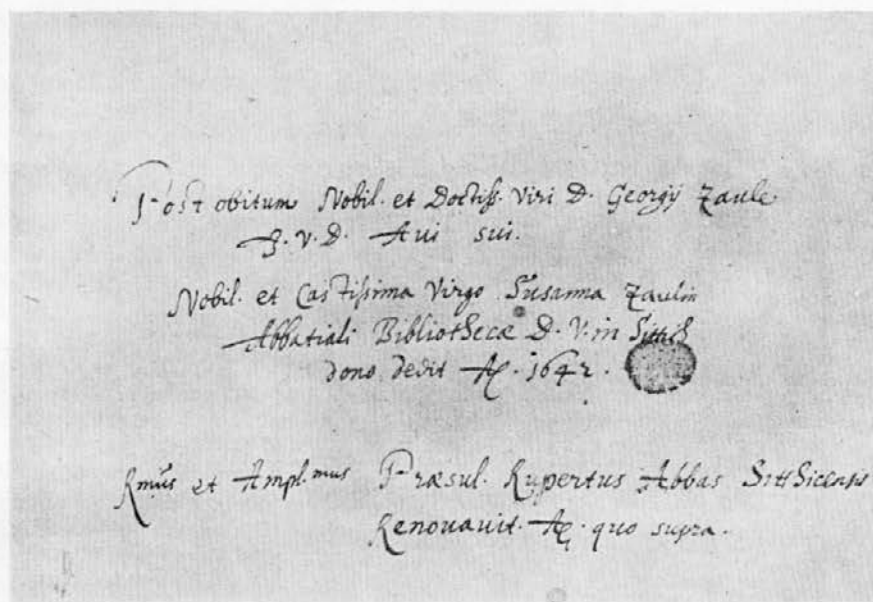 Post obitum Nobil. et Doctiss. Viri D. Georgij Zaule
J. V. D. Aui sui.
Nobil. et Castissima Virgo Susanna Zaulin
Abbatiali Bibliothecæ D. V. in Sittich
dono dedit Aº. 1642.
Rmus et Ampl.mus Præsul. Rupertus Abbas Sitthicensis
Renouauit. Aº. quo supra.